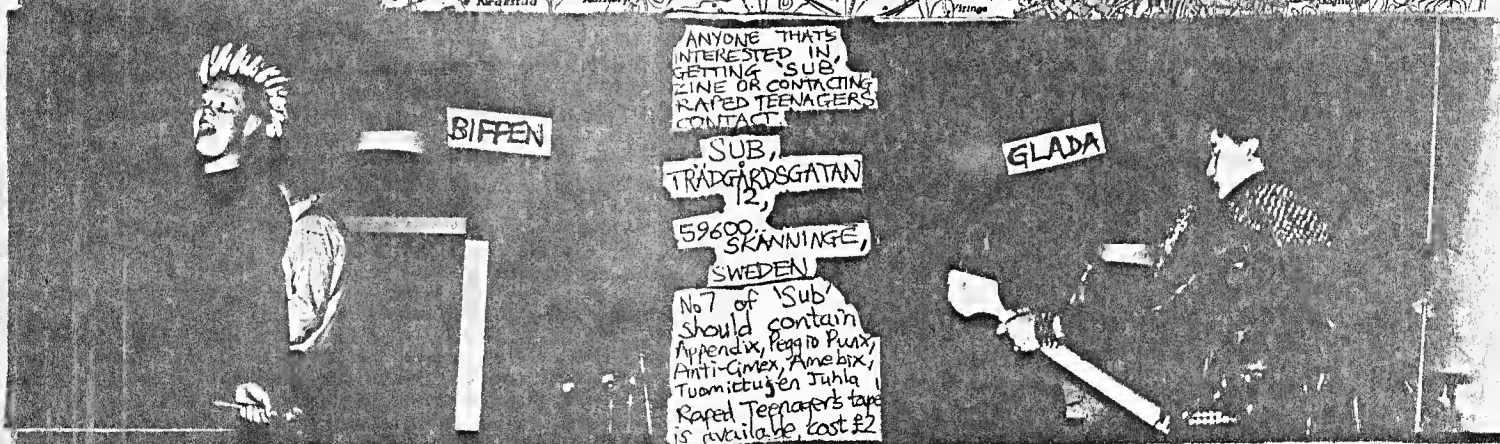 BIFFEN
ANYONE THATS
INTERESTED IN
GETTING 'SUB'
ZINE OR CONTACTING
RAPED TEENAGERS
CONTACT:
SUB,
TRÄDGÅRDSGATAN
12,
59600..
SKÄNNINGE,
SWEDEN
No7 of 'Sub'
should contain
Appendix, Peggio Punx,
Anti-Cimex, Amebix,
Tuomittujen Juhla
Raped Teenagers tape
is available, cost £2
GLADA